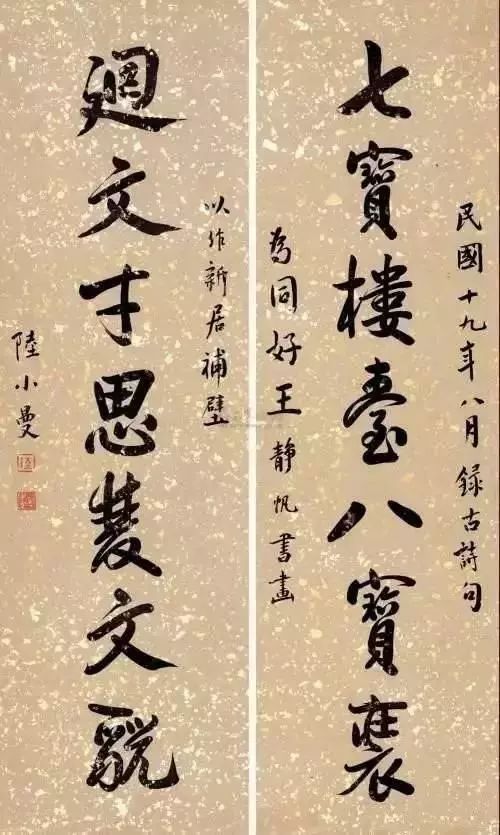 民國十九年八月錄古詩句
七寶樓臺八寶裝
為同好王靜帆書畫
以作新居補壁
迴文才思文
陸小曼